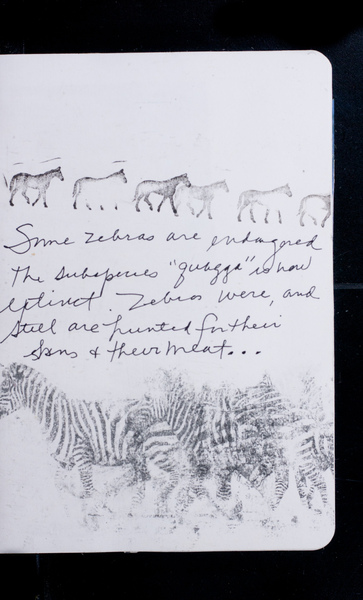 Some zebras are endangered
The subspecies "quagga" is now
extinct. Zebras were, and
still are hunted for their
skins & their meat...